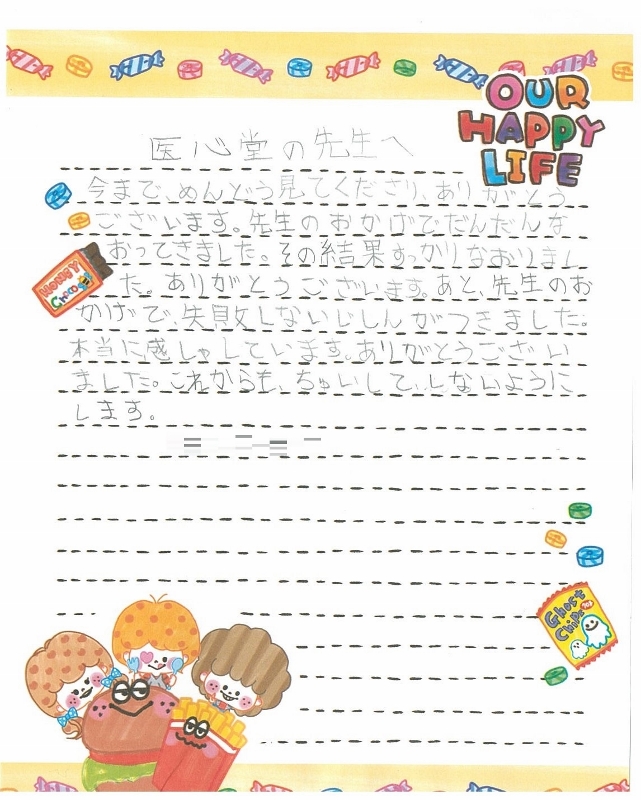 OUR
HAPPY
LIFE
医心堂の先生へ
今まで、めんどう見てくださり、ありがとう
ございます。先生のおかげでだんだんな
おってきました。その結果すっかりなおりまし
た。ありがとうございます。あと先生のお
かげで、失敗しないじしんがつきました。
本当に感しゃしています。ありがとうござい
ました。これからも、ちゅいして、しないように
します。
HONEY
Chocolate
Ghost
Chips